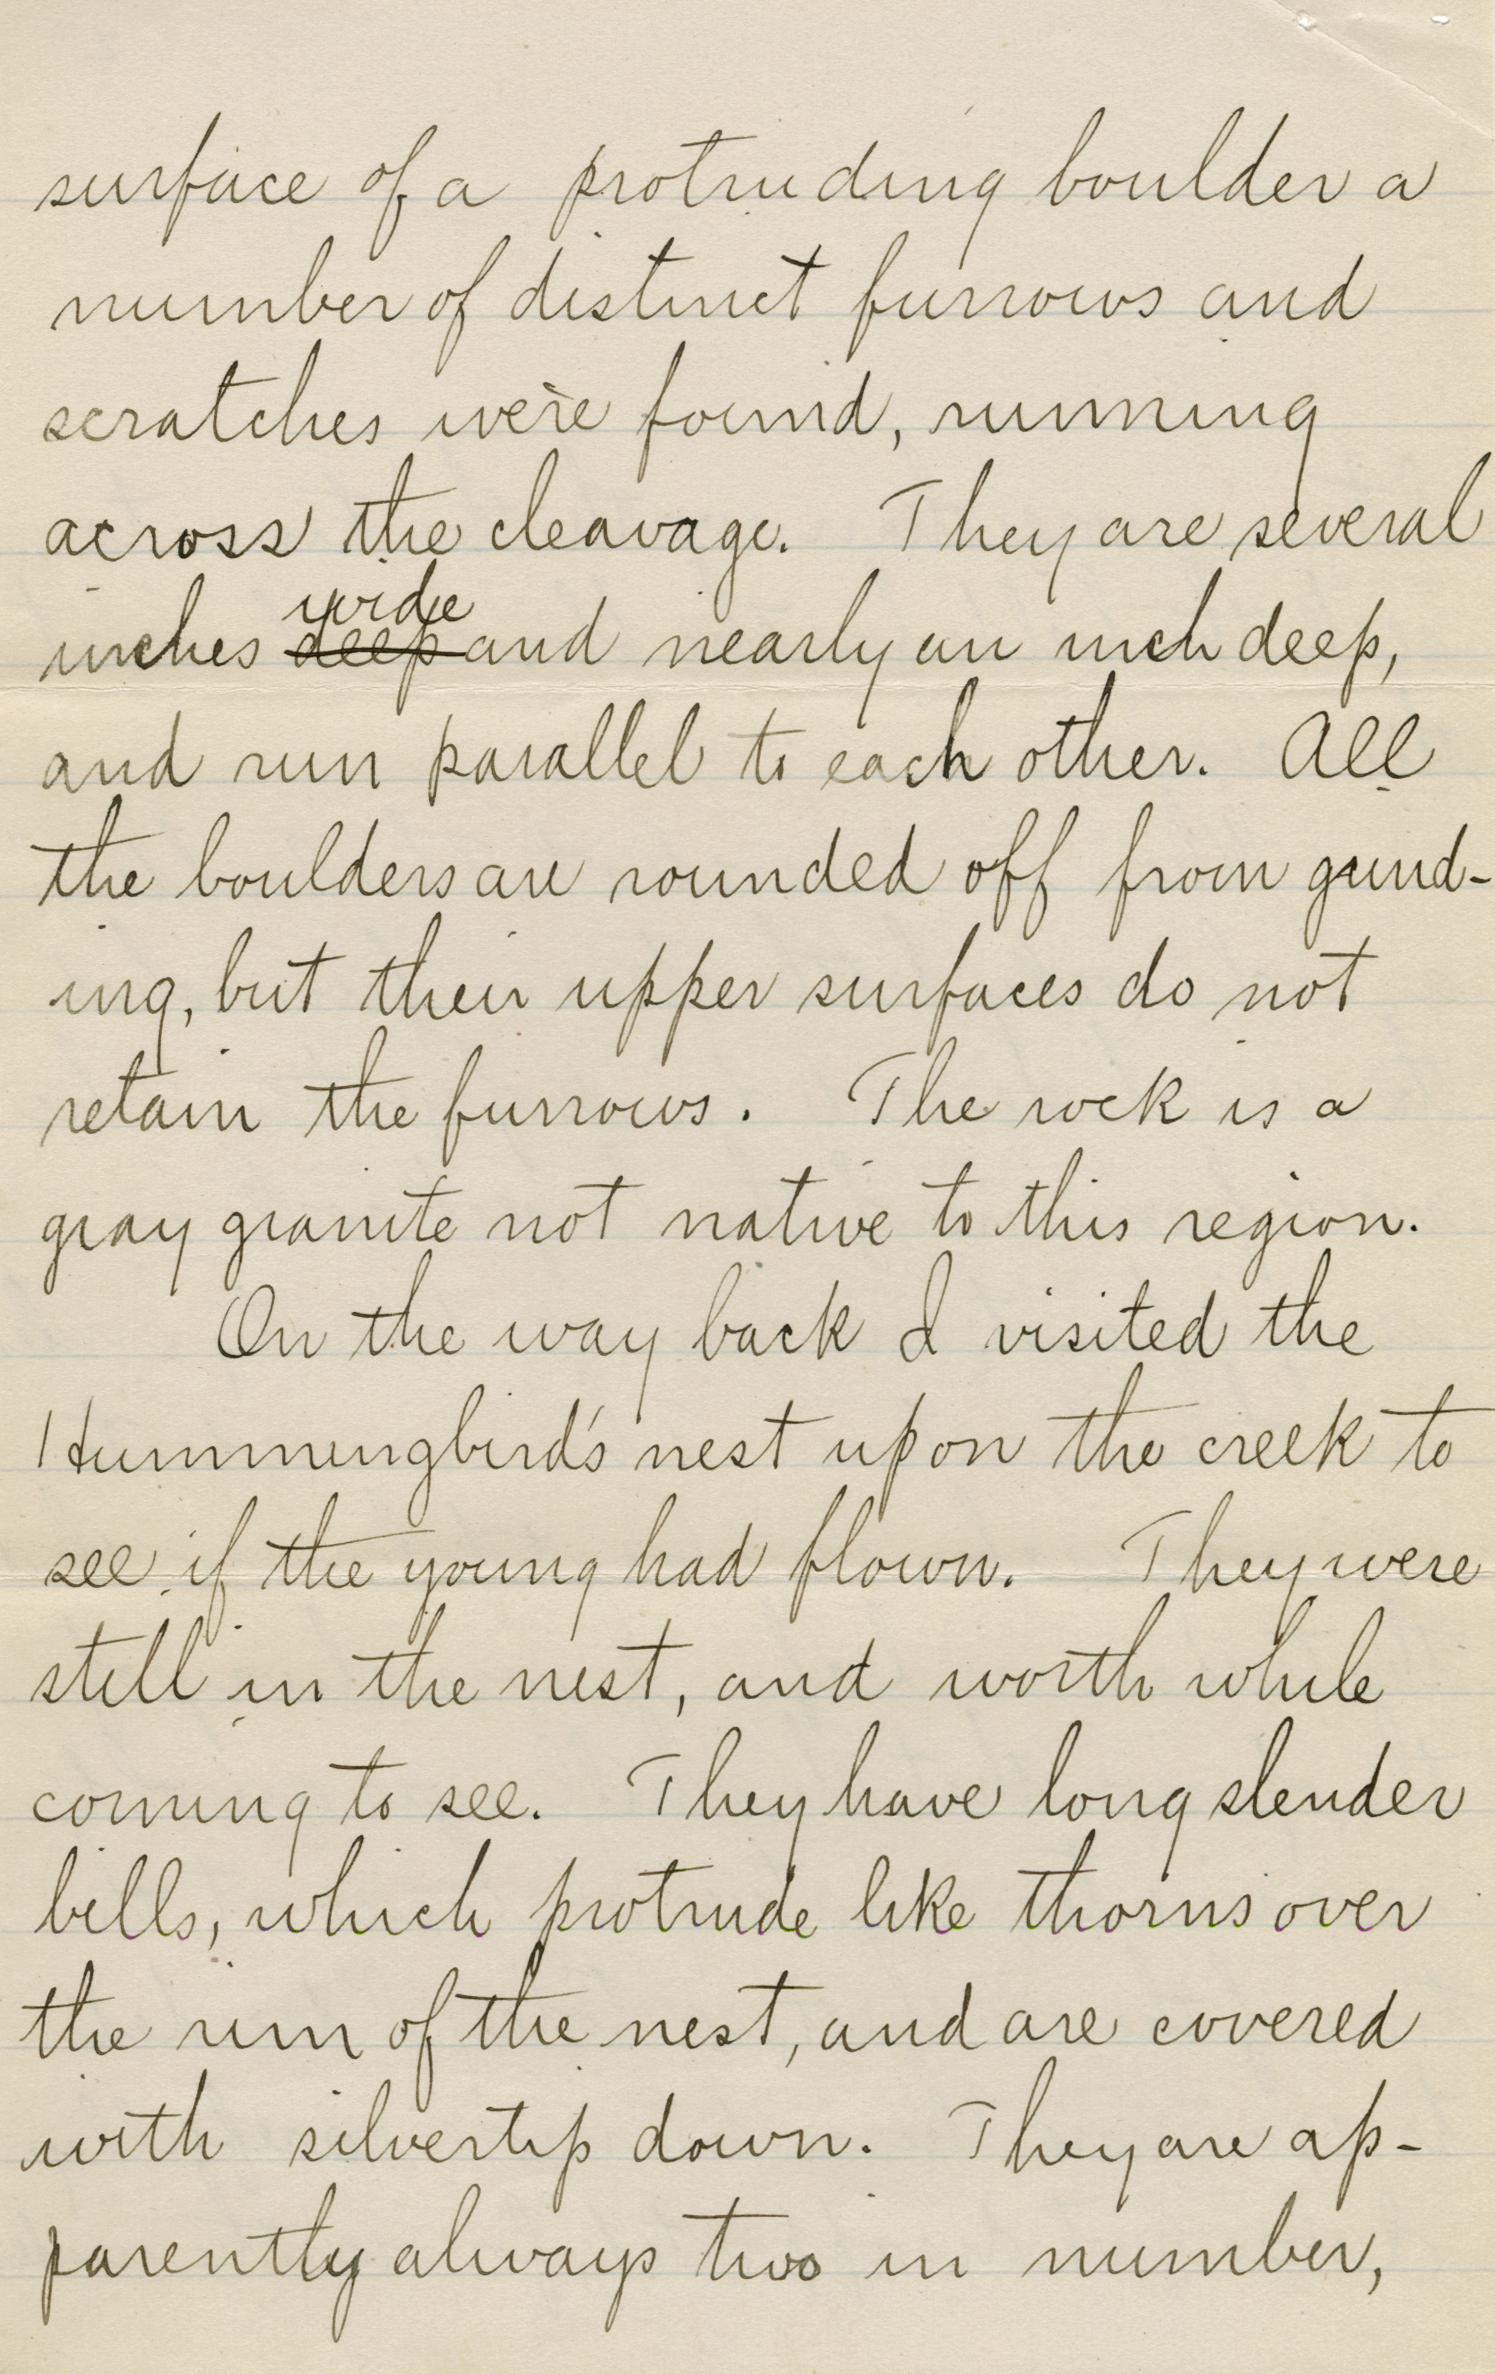 surface of a protruding boulder a
number of distinct furrows and
scratches were found, running
across the cleavage. They are several
wide
inches deep and nearly an inch deep,
and run parallel to each other. All
the boulders are rounded off from grind-
ing, but their upper surfaces do not
retain the furrows. The rock is a
gray granite not native to this region.
On the way back I visited the
Hummingbird's nest upon the creek to
see if the young had flown. They were
still in the nest, and worth while
coming to see. They have long slender
bills, which protrude like thorns over
the rim of the nest, and are covered
with silvertip down. They are ap-
parently always two in number,